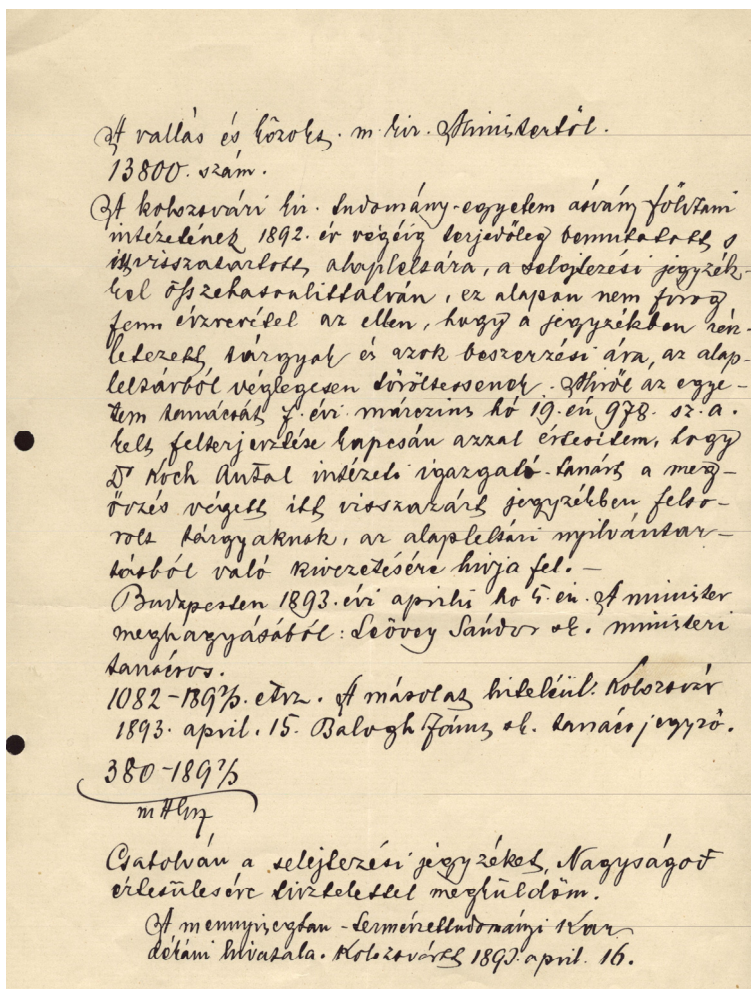 A vallás és közokt. m. kir. Ministertől.
13800. szám.
A kolozsvári kir. tudomány-egyetem ásvány-földtani
intézetének 1892. év végéig terjedőleg bemutatott s
itt visszatartott alapleltára, a selejtezési jegyzék-
kel összehasonlittatván, ez alapon nem forog
fenn észrevétel az ellen, hogy a jegyzékben rész-
letezett tárgyak és azok beszerzési ára, az alap-
leltárból véglegesen töröltessenek. Miről az egye-
tem tanácsát f. évi márczius hó 19.én 978. sz. a.
kelt felterjesztése kapcsán azzal értesitem, hogy
Dr Koch Antal intézeti igazgató-tanárt a meg-
őrzés végett itt visszazárt jegyzékben felso-
rolt tárgyaknak, az alapleltári nyilvántar-
tásból való kivezetésére hivja fel.-
Budapesten 1893. évi április hó 5.én. A minister
meghagyásából: Leövey Sándor sk. ministeri
tanácsos.
1082-1892/3. etsz. A másolat hiteléül: Kolozsvár
1893. april. 15. Balogh János sk. tanácsjegyző.
380-1892/3
Csatolván a selejtezési jegyzéket, Nagyságod
értesülésére tisztelettel megküldöm.
A mennyiségtan-természettudományi Kar
dékáni hivatala. Kolozsvártt 1893. april. 16.